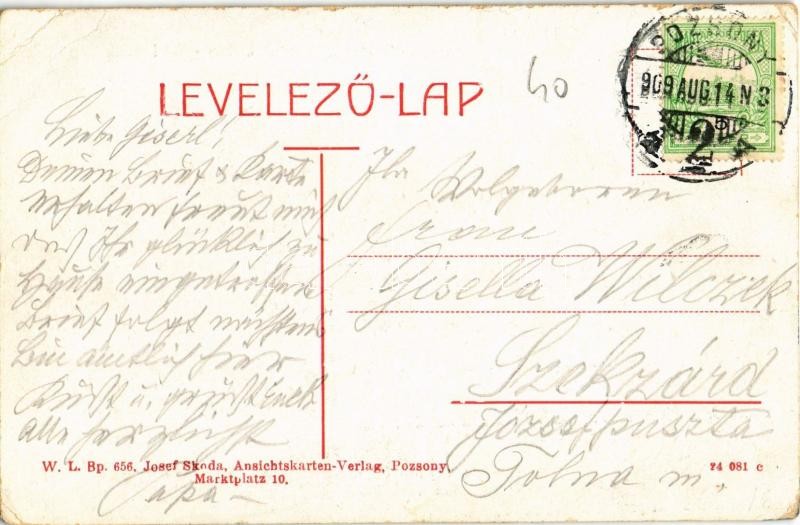 LEVELEZŐ-LAP
40
POZSONY
909 AUG 14 N 3
Liebe Giserl!
Deinen Brief & Karte
erhalten freut mich
das Ihr glücklich zu
Hause eingetroffen
Brief folgt nächstens
Bin amtlich hier
Küsst u. grüsst Euch
alle herzlichst
Papa
Wolgeboren
Frau
Gisella Wilczek
Szekzárd
Józsefpuszta
Tolna m.
W. L. Bp. 656. Josef Skoda, Ansichtskarten-Verlag, Pozsony,
Marktplatz 10.
74 081 c